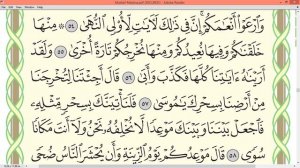 وَٱرْعَوْا۟ أَنْعَٰمَكُمْ إِنَّ فِى ذَٰلِكَ لَءَايَٰتٍ لِّأُو۟لِى ٱلنُّهَىٰ ٥٤ مِنْهَا
خَلَقْنَٰكُمْ وَفِيهَا نُعِيدُكُمْ وَمِنْهَا نُخْرِجُكُمْ تَارَةً أُخْرَىٰ ٥٥ وَلَقَدْ
أَرَيْنَٰهُ ءَايَٰتِنَا كُلَّهَا فَكَذَّبَ وَأَبَىٰ ٥٦ قَالَ أَجِئْتَنَا لِتُخْرِجَنَا
مِنْ أَرْضِنَا بِسِحْرِكَ يَٰمُوسَىٰ ٥٧ فَلَنَأْتِيَنَّكَ بِسِحْرٍ مِّثْلِهِۦ
فَٱجْعَلْ بَيْنَنَا وَبَيْنَكَ مَوْعِدًا لَّا نُخْلِفُهُۥ نَحْنُ وَلَآ أَنتَ مَكَانًا
سُوًى ٥٨ قَالَ مَوْعِدُكُمْ يَوْمُ ٱلزِّينَةِ وَأَن يُحْشَرَ ٱلنَّاسُ ضُحًى